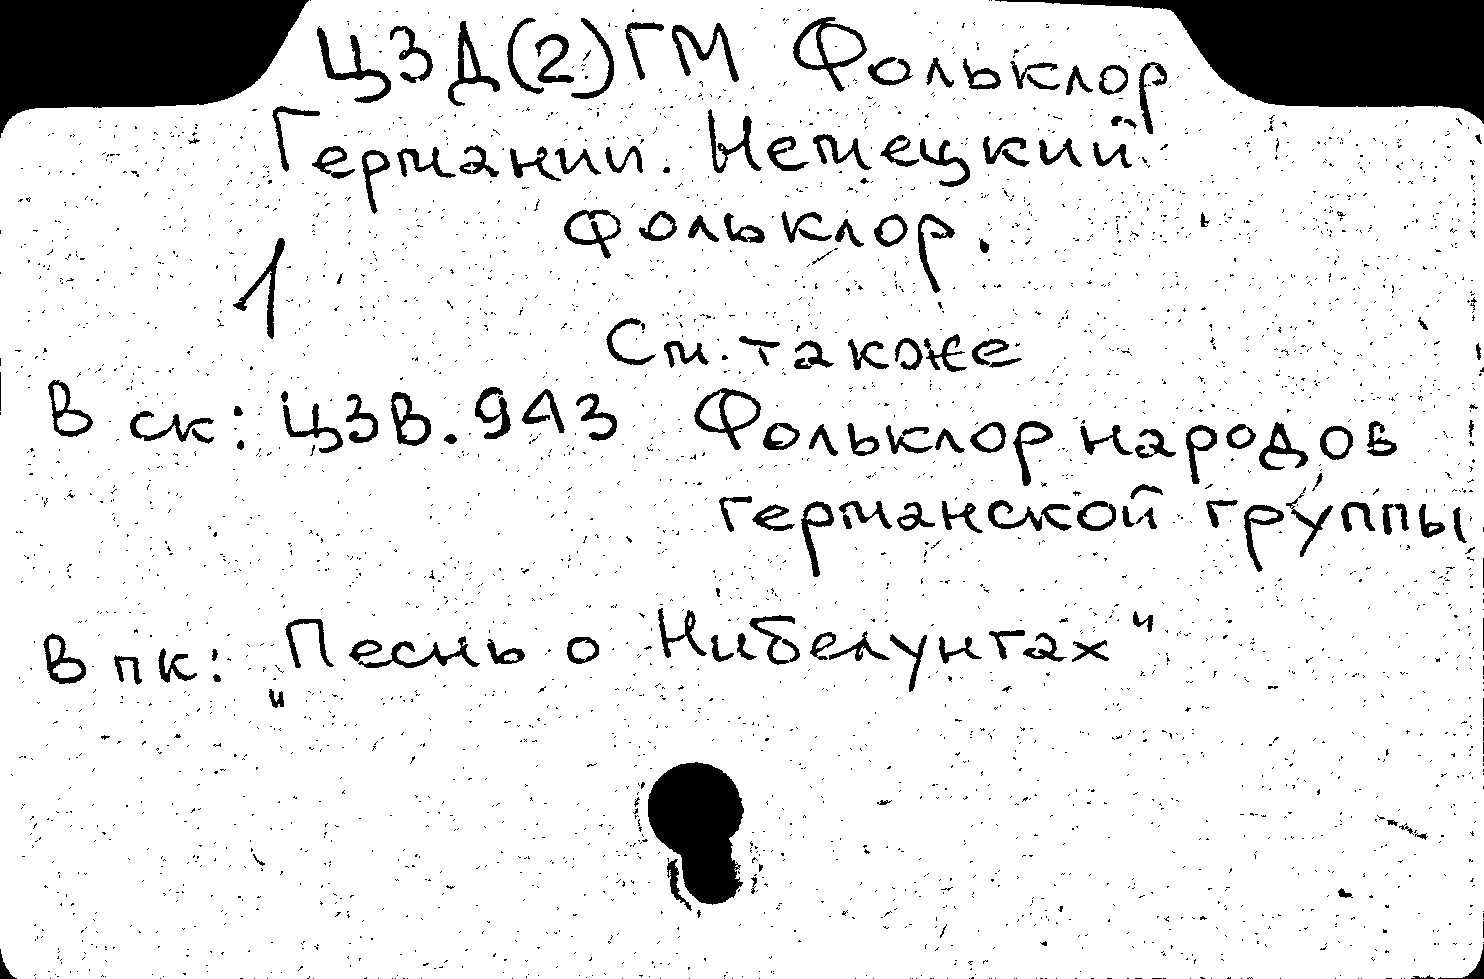 ЦЗД(2)ГМ Фольклор
Германии. Немецкий
фольклор.
1
См. также
В ск: ЦЗВ.943 Фольклор народов
германской группы
В пк: "Песнь о Нибелунгах"